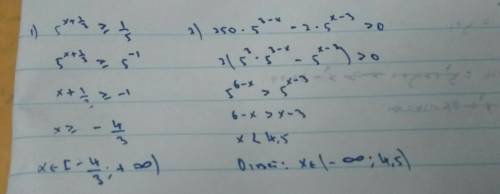 1) 5^{x+1/3} ≥ 1/5
5^{x+1/3} ≥ 5^{-1}
x+1/3 ≥ -1
x ≥ - 4/3
x ∈ [- 4/3; +∞)
2) 250 · 5^{3-x} - 2 · 5^{x-3} > 0
2(5^3 · 5^{3-x} - 5^{x-3}) > 0
5^{6-x} > 5^{x-3}
6-x > x-3
x < 4,5
Ответ: x ∈ (-∞; 4,5)